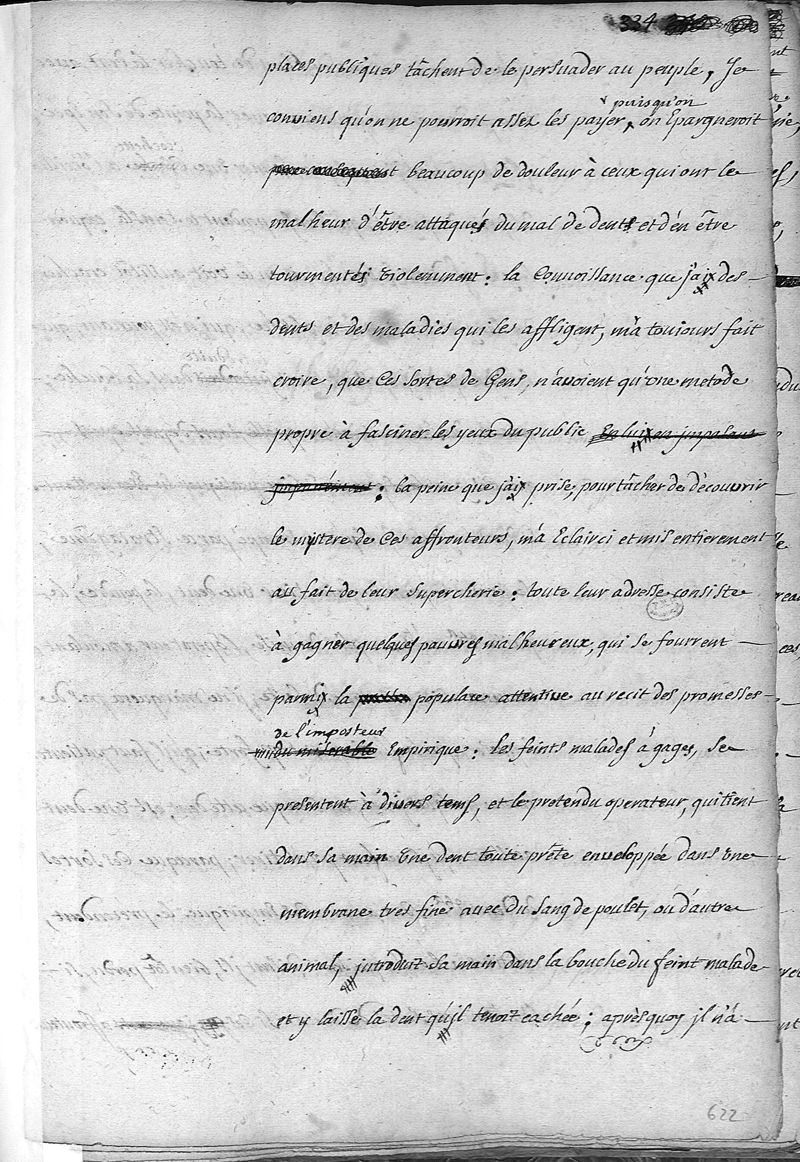 334
places publiques tâchent de le persuader au peuple, Je
puisqu'on
conviens qu'on ne pourroit assez les payer, on Epargneroit
beaucoup de douleur à ceux qui ont le
malheur d'être attaqués du mal de dents et d'en être
tourmentés violemment : la Connoissance que j'aix des
dents et des maladies qui les affligent, m'a toujours fait
croire, que Ces sortes de Gens, n'avoient qu'une metode
propre à fasciner les yeux du public En luix en imposant
impunément : la peine que j'aix prise, pour tâcher de découvrir
le mystere de Ces affronteurs, m'a Eclairci et mis entierement
au fait de leur supercherie : toute leur adresse consiste
à gagner quelques pauvres malheureux, qui se fourrent
parmix la populace attentive au recit des promesses
de l'imposteur
du misérable Empirique : les feints malades à gages, se
presentent à divers tems, et le pretendu operateur, qui tient
dans sa main une dent toute prête enveloppée dans une
membrane tres fine avec du sang de poulet, ou d'autre
animal, jntroduit sa main dans la bouche du feint malade
et y laisse la dent qu'jl tenoit cachée ; aprèsquoy jl n'a
622